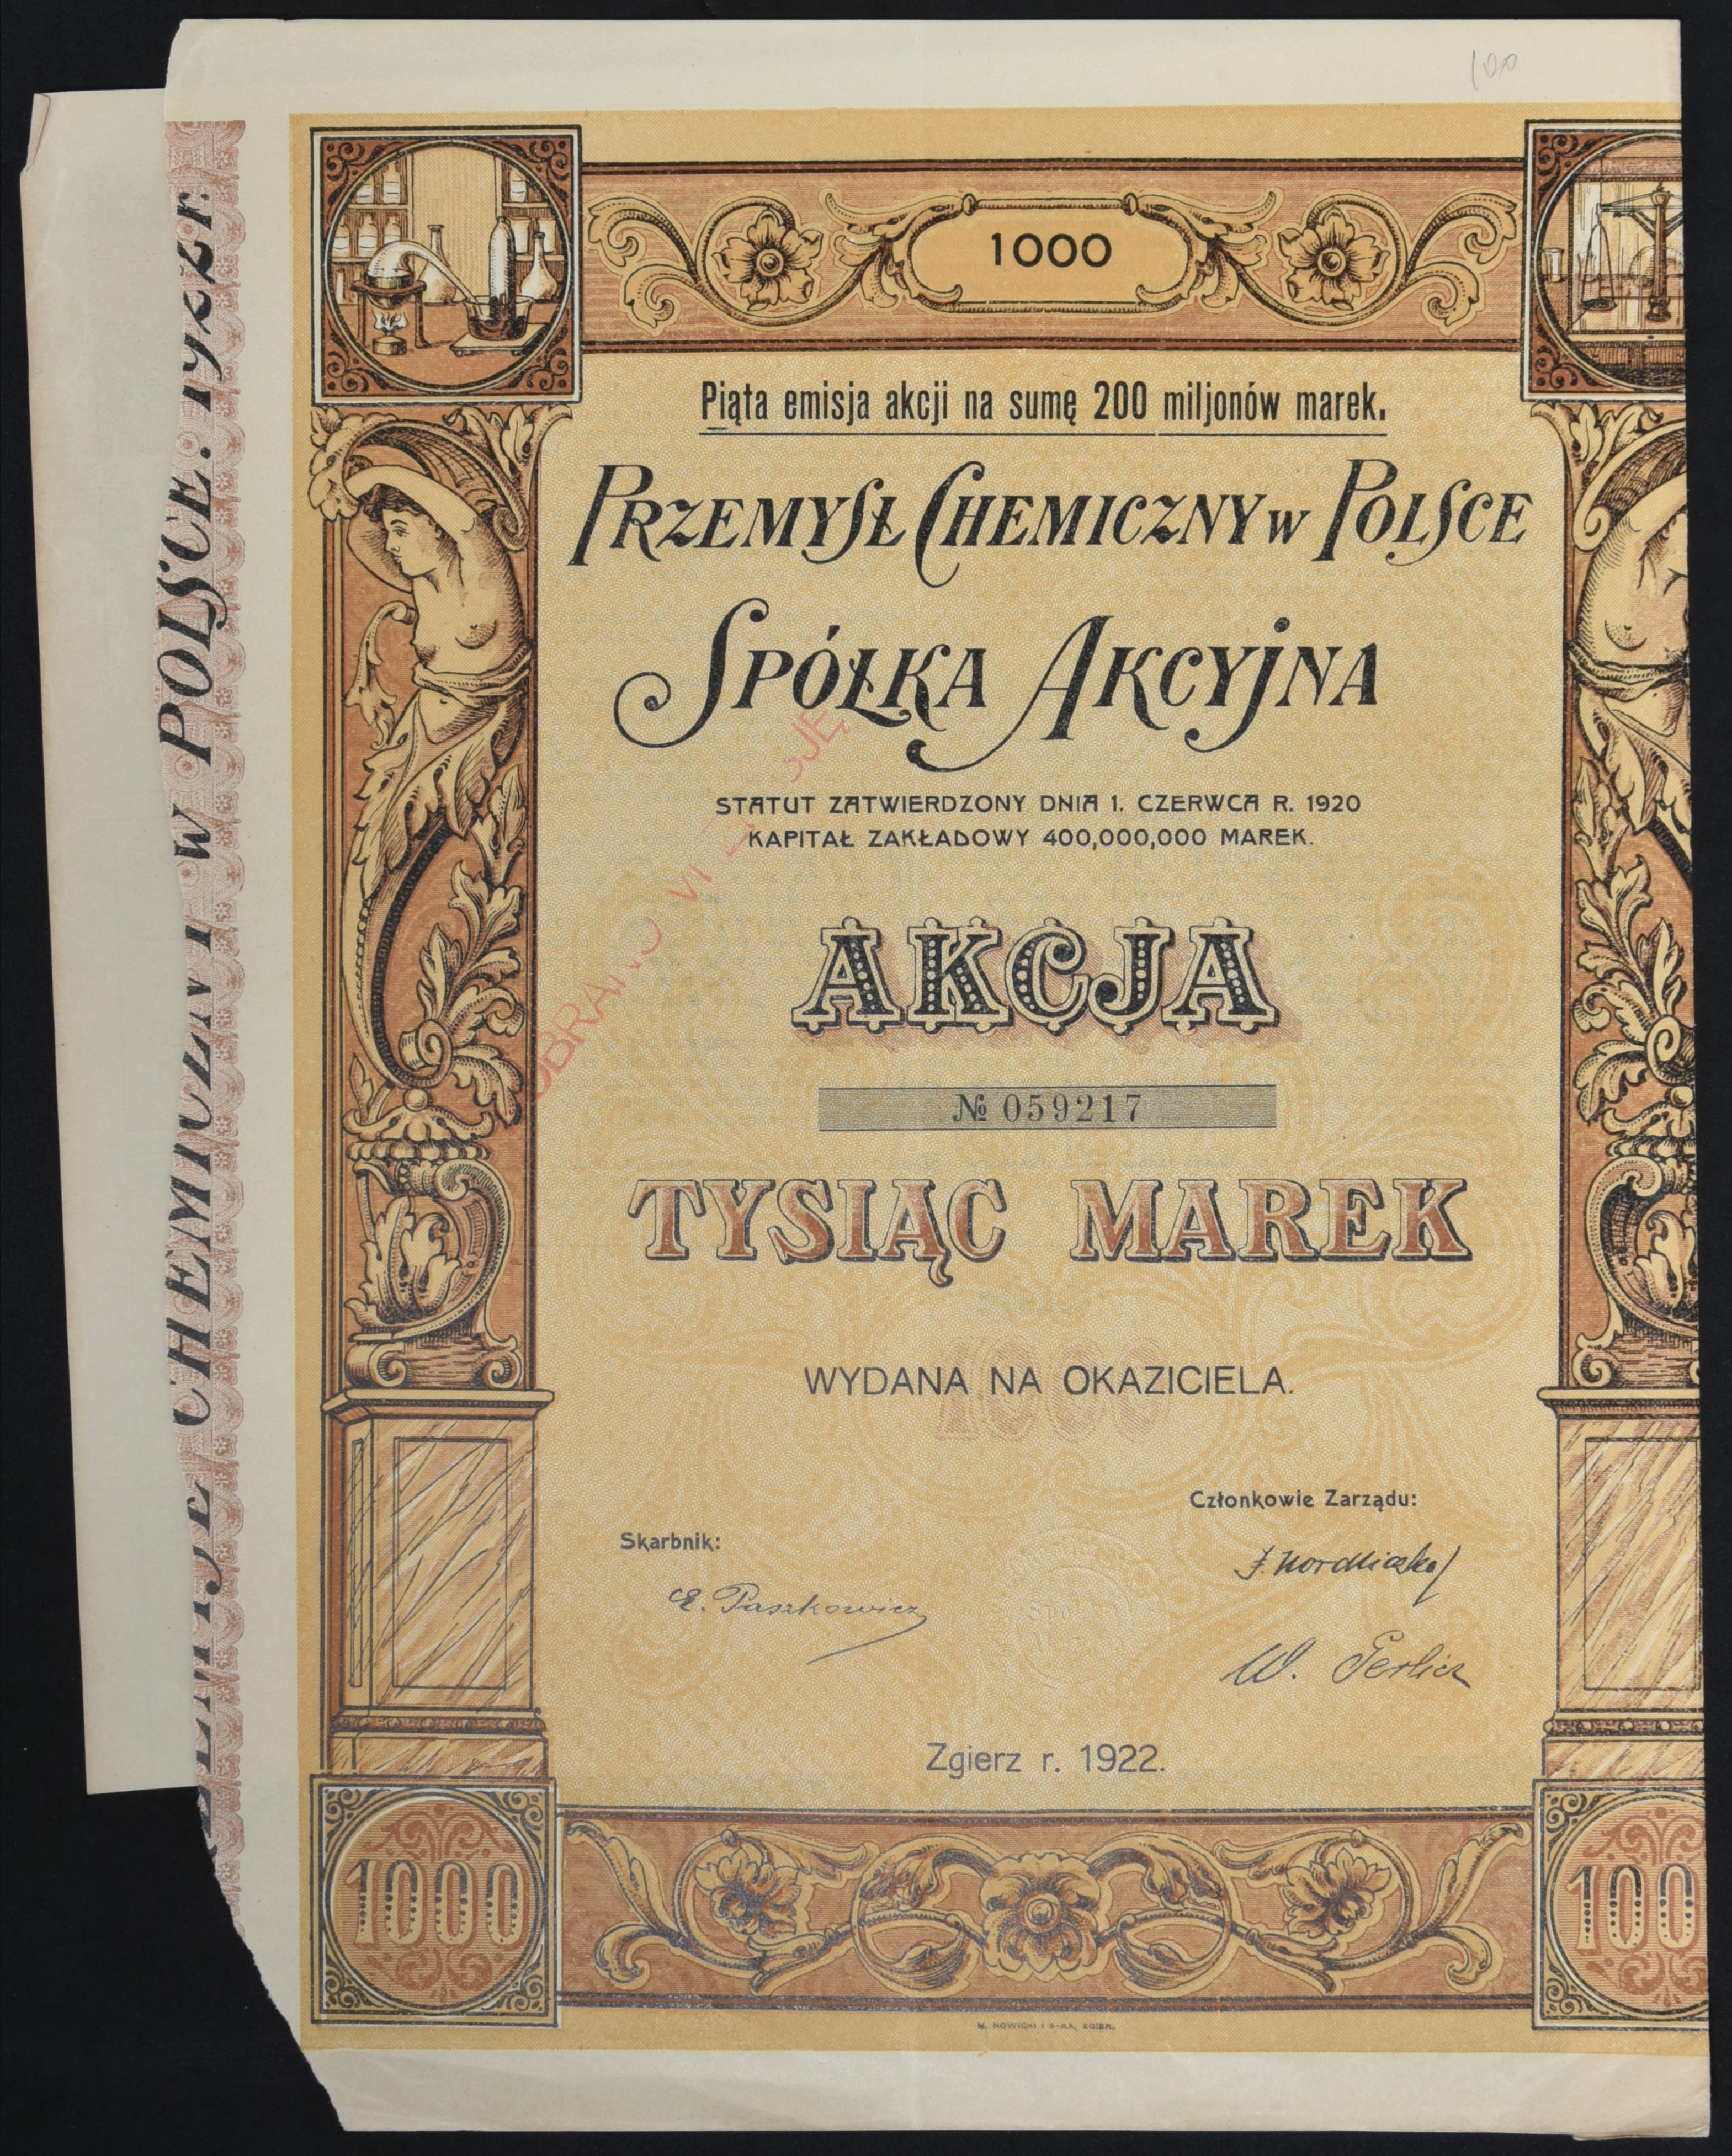 100
1000
Piąta emisja akcji na sumę 200 miljonów marek.
PRZEMYSŁ CHEMICZNY w POLSCE
SPÓŁKA AKCYJNA
STATUT ZATWIERDZONY DNIA 1. CZERWCA R. 1920
KAPITAŁ ZAKŁADOWY 400,000,000 MAREK.
AKCJA
№ 059217
TYSIĄC MAREK
WYDANA NA OKAZICIELA.
1000
Członkowie Zarządu:
Skarbnik:
E. Paszkowicz
W.
Zgierz r. 1922.
1000
100
M. NOWICKI I S-KA, ZGIERZ.
CHEMICZNY W POLSCE. 1922 r.